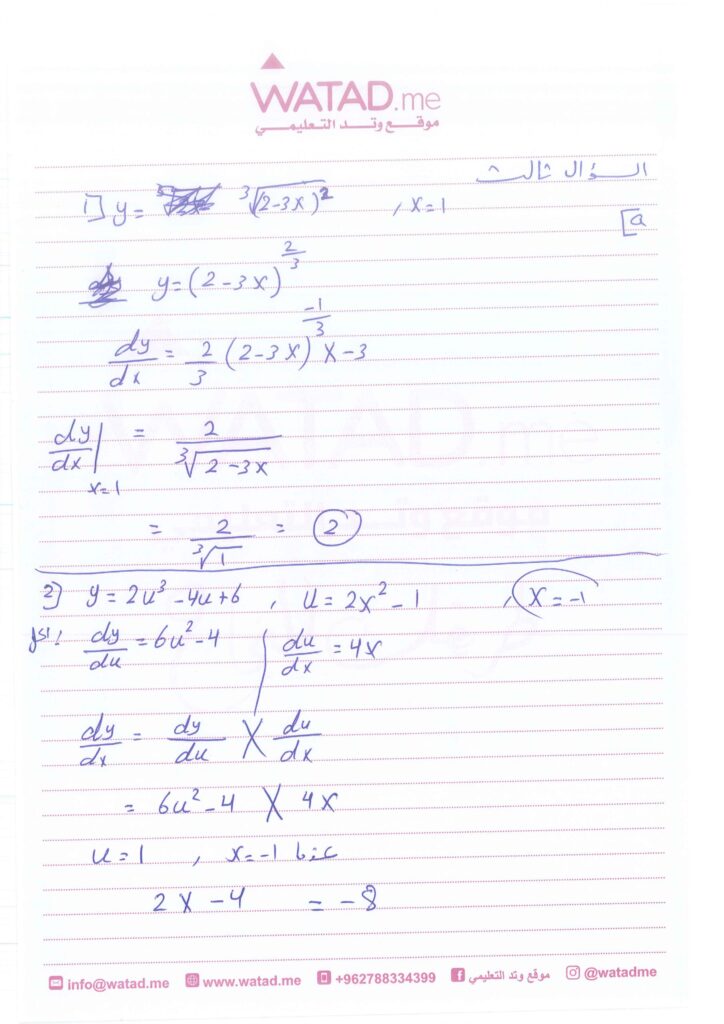 WATAD.me
موقع وتد التعليمي
السؤال ثالث
a]
1] y = ∛(2-3x)² , x=1
y = (2-3x)^(2/3)
dy/dx = 2/3 (2-3x)^(-1/3) × -3
dy/dx |x=1 = 2/∛(2-3x)
= 2/∛1 = 2
2] y = 2u³ -4u+6 , u = 2x² - 1 , x = -1
dy/du = 6u² -4 / du/dx = 4x
dy/dx = dy/du × du/dx
= 6u² -4 × 4x
u = 1 , x = -1 عندما
2 × -4 = -8
info@watad.me www.watad.me +962788334399 موقع وتد التعليمي @watadme